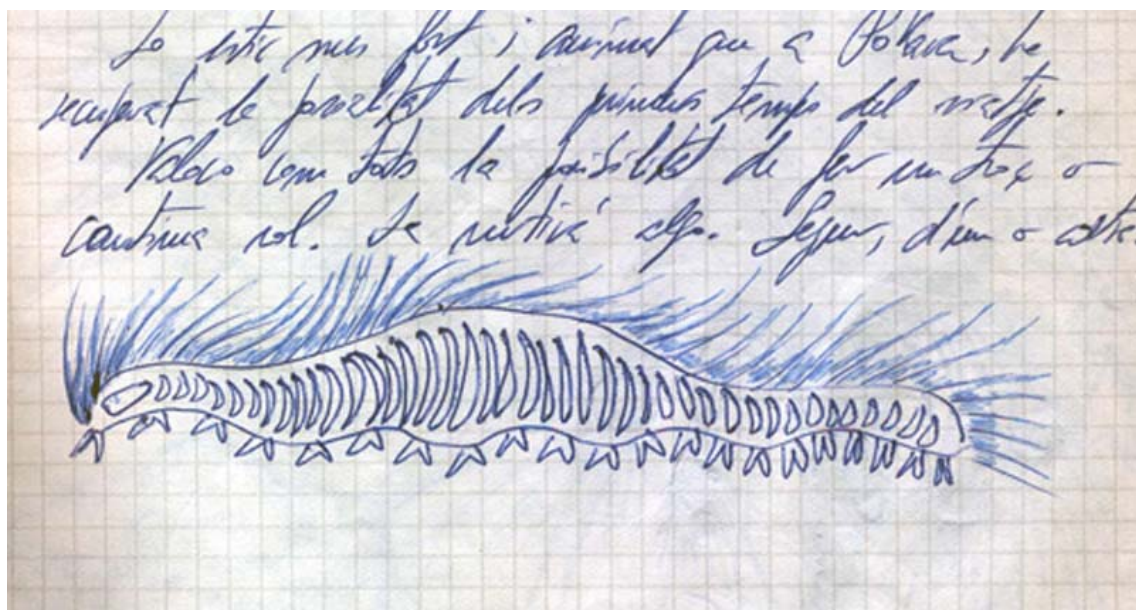 Jo estic mes fort i animat que a Pokara, he
recuperat la jovialitat dels primers temps del viatje.
Valoro com tots la posibilitat de fer un trox o
continua sol. Ja sortirá algo. Segur, d'un o altre